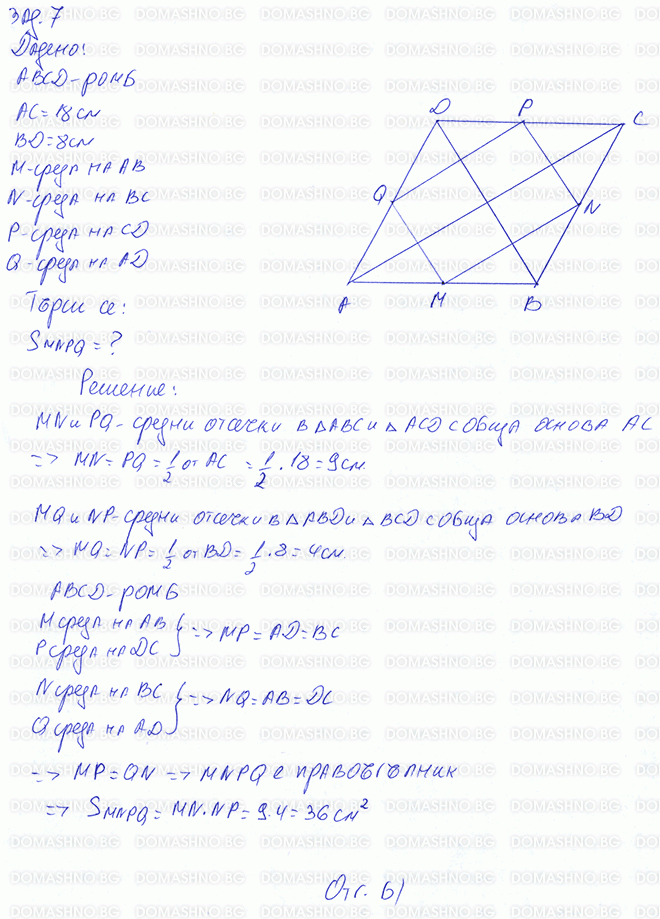 Зад. 7
Дадено:
ABCD - ромб
AC = 18 см
BD = 8 см
M - среда на AB
N - среда на BC
P - среда на CD
Q - среда на AD
Търси се:
S MNPQ = ?
D P C
Q N
A M B
Решение:
MN и PQ - средни отсечки в △ABC и △ACD с обща основа AC
=> MN = PQ = 1/2 от AC = 1/2 . 18 = 9 см
MQ и NP - средни отсечки в △ABD и △BCD с обща основа BD
=> MQ = NP = 1/2 от BD = 1/2 . 8 = 4 см
ABCD - ромб
M среда на AB
P среда на DC } => MP = AD = BC
N среда на BC
Q среда на AD } => NQ = AB = DC
=> MP = QN => MNPQ е правоъгълник
=> S MNPQ = MN . NP = 9 . 4 = 36 см²
Отг. б)